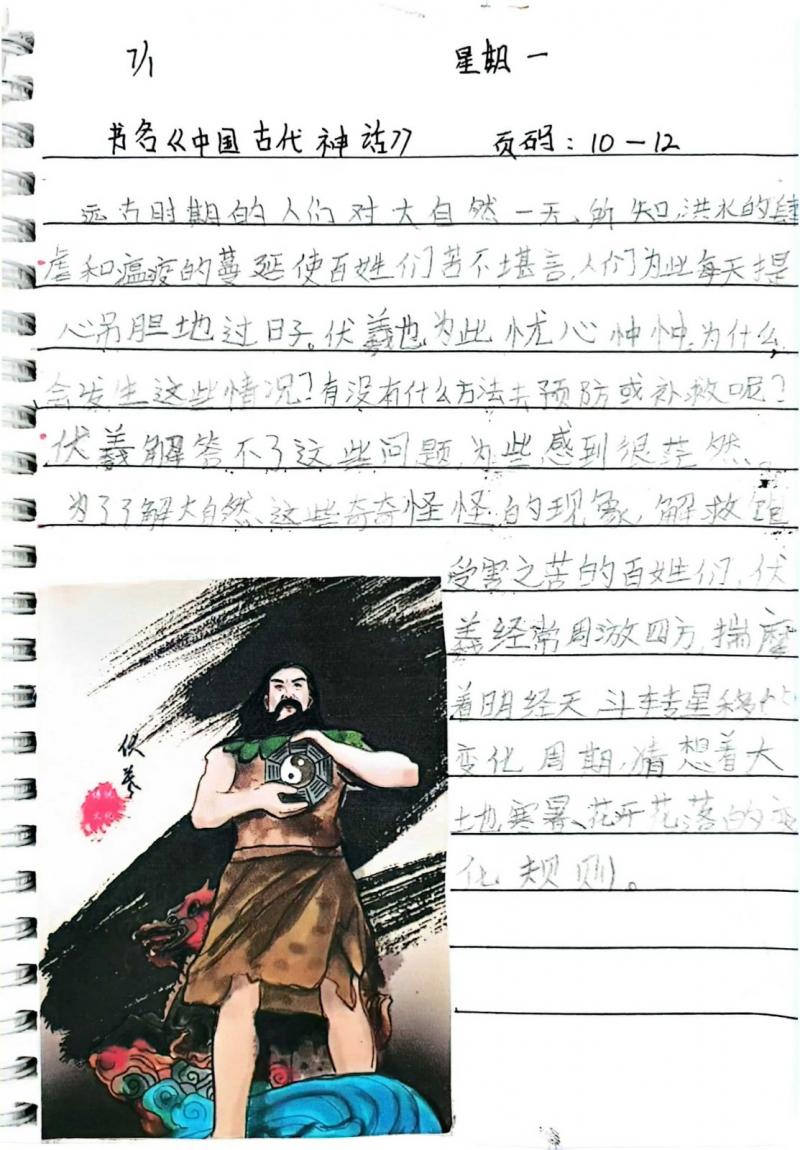 7/1 星期一
书名《中国古代神话》 页码：10—12
远古时期的人们对大自然一无所知,洪水的肆
虐和瘟疫的蔓延使百姓们苦不堪言,人们为此每天提
心吊胆地过日子。伏羲也为此忧心忡忡,为什么
会发生这些情况?有没有什么方法去预防或补救呢?
伏羲解答不了这些问题,为些感到很茫然。
为了了解大自然、这些奇奇怪怪的现象,解救饱
受害之苦的百姓们,伏
羲经常周游四方,揣摩
着明经天 斗转星移的
变化周期,猜想着大
土地寒暑、花开花落的变
化规则。
伏羲